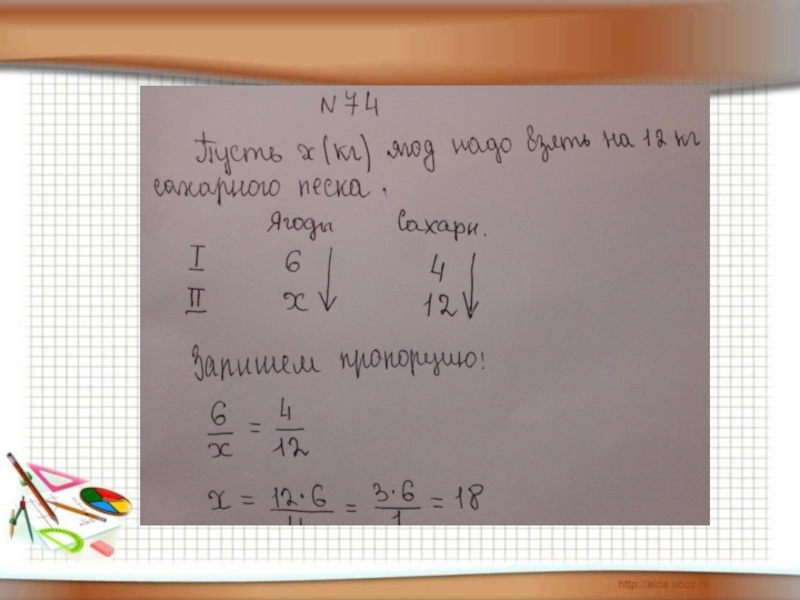 N 74
Пусть x (кг) ягод надо взять на 12 кг
сахарного песка.
Ягоды Сахарн.
I 6 4
II x 12
Запишем пропорцию:
6/x = 4/12
x = 12·6/4 = 3·6/1 = 18
http://aida.ucoz.ru